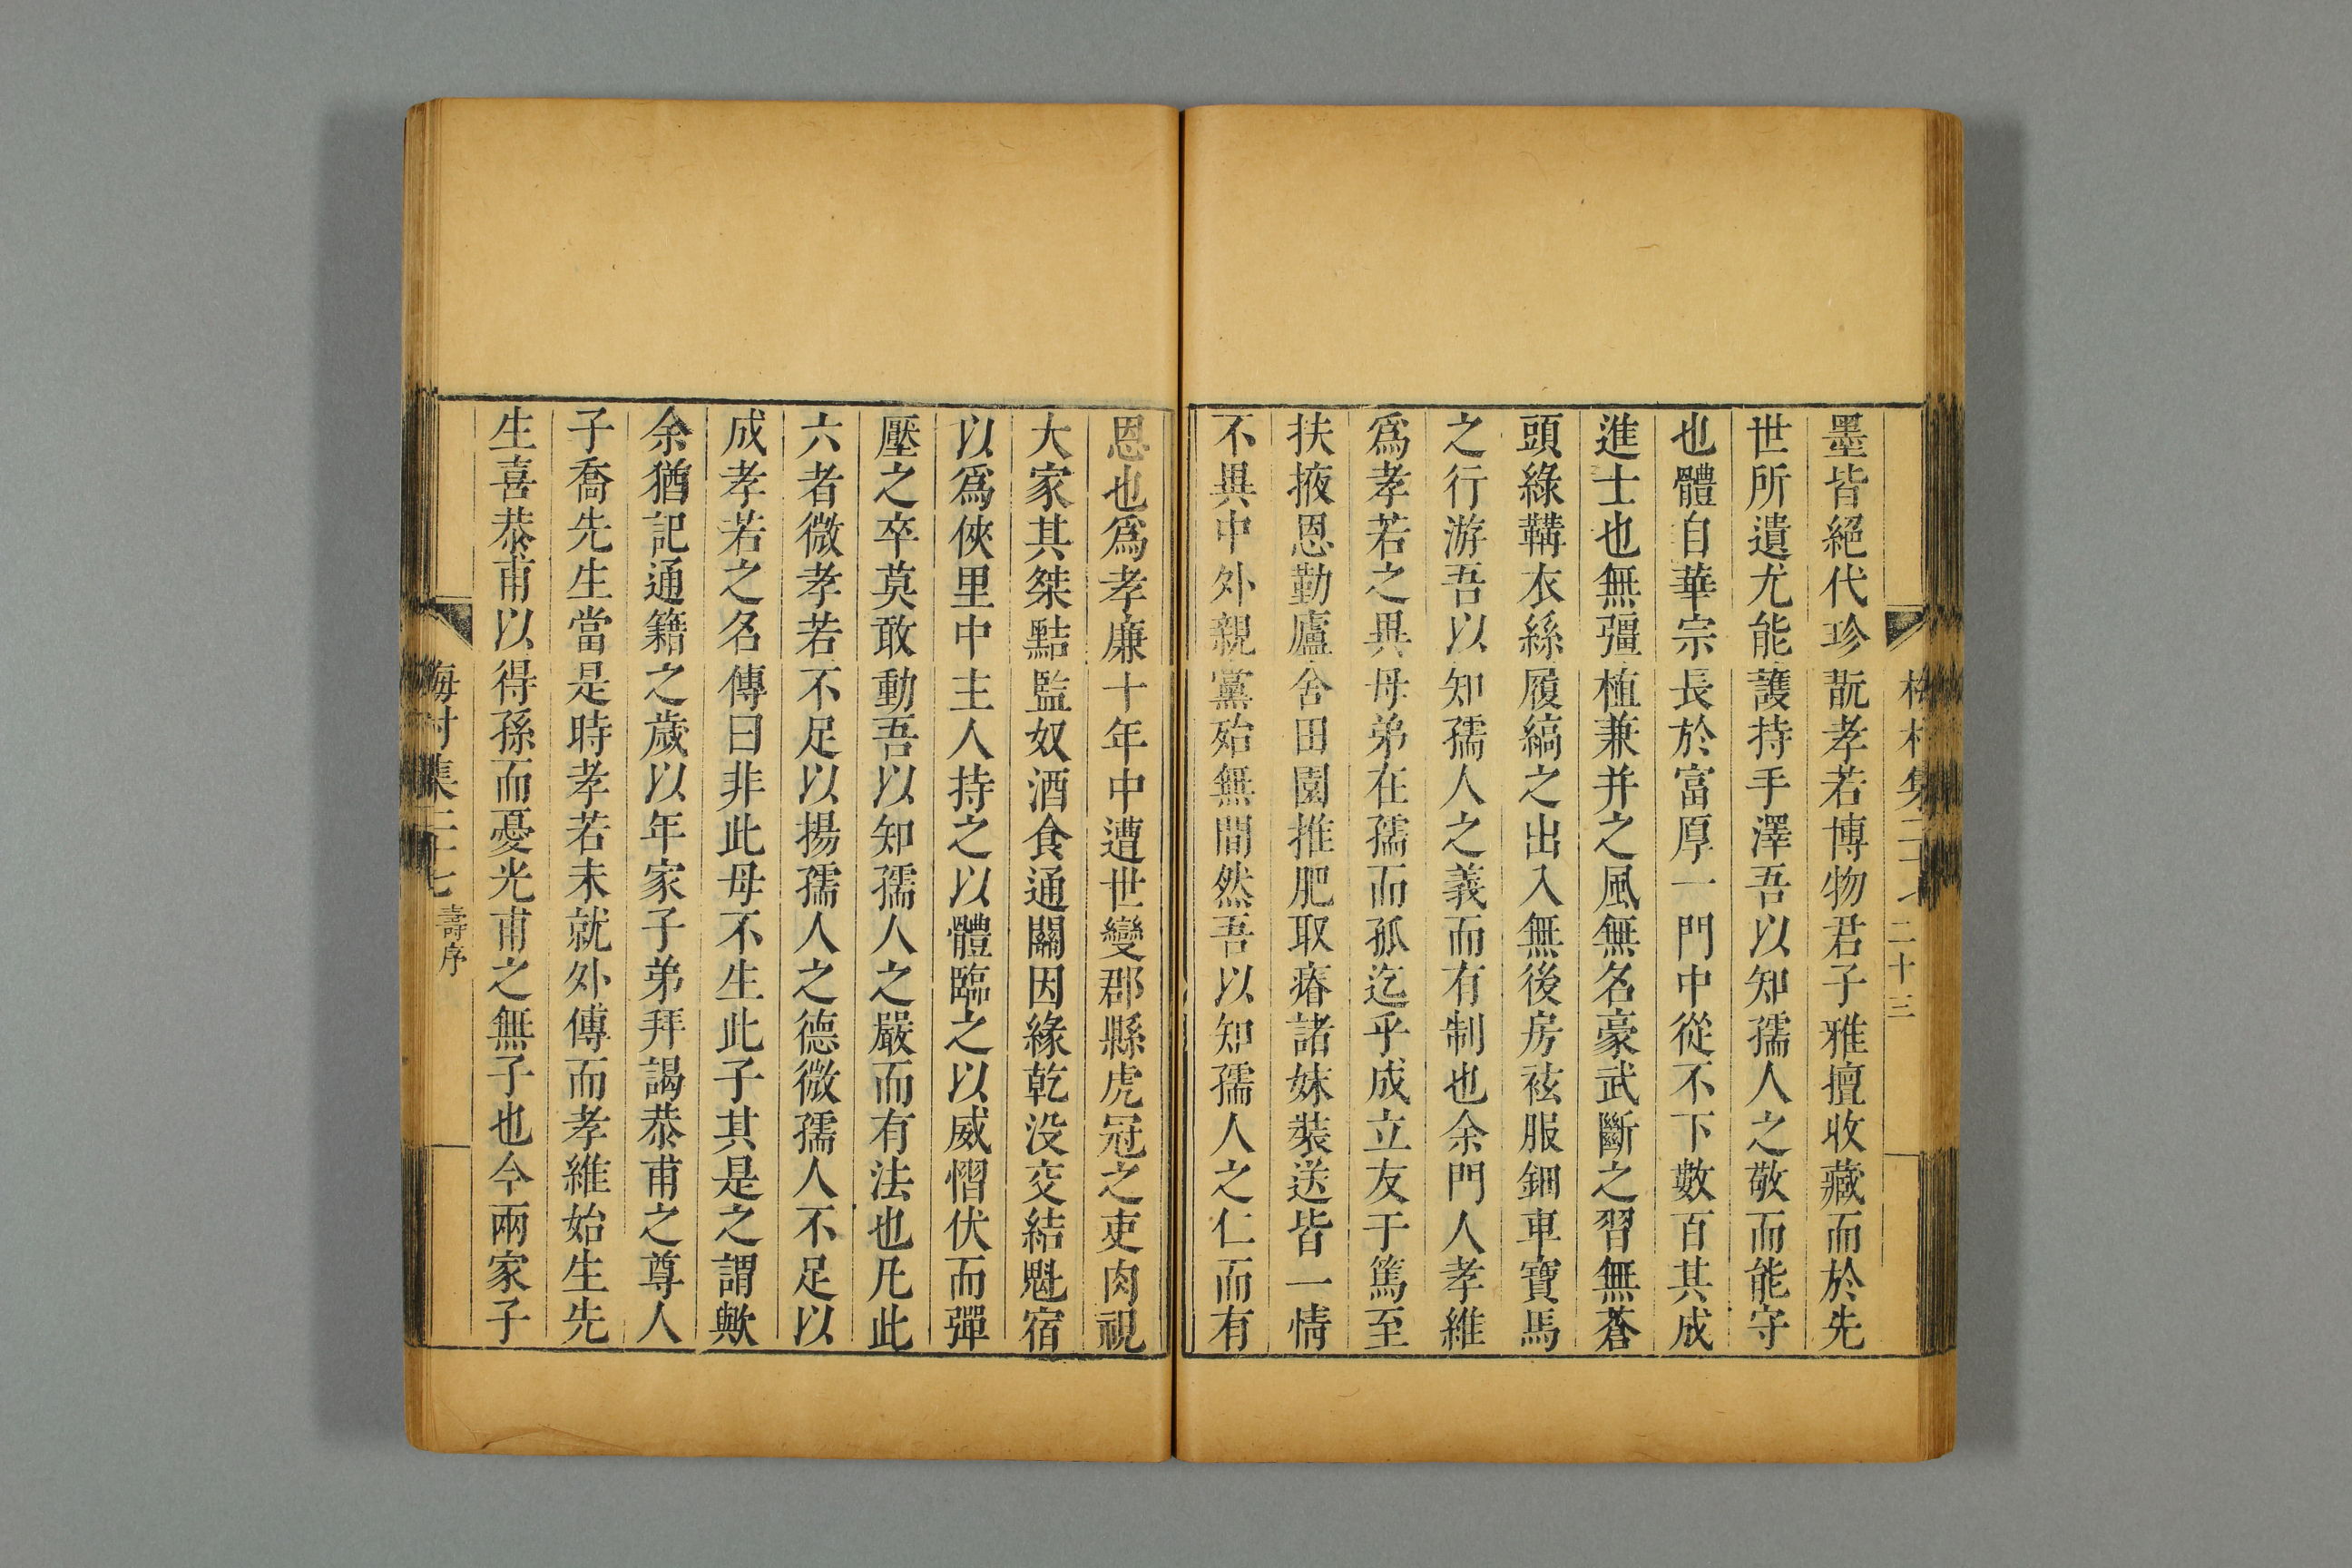 梅村集二十七 二十三
墨皆絕代珍翫孝若博物君子雅擅收藏而於先
世所遺尤能護持手澤吾以知孺人之敬而能守
也體自華宗長於富厚一門中從不下數百其成
進士也無彊植兼并之風無名豪武斷之習無蒼
頭綠鞲衣絲履縞之出入無後房袨服鈿車寶馬
之行游吾以知孺人之義而有制也余門人孝維
爲孝若之異母弟在孺而孤迄乎成立友于篤至
扶掖恩勤廬舍田園推肥取瘠諸妹裝送皆一情
不異中外親黨殆無間然吾以知孺人之仁而有
恩也爲孝廉十年中遭世變郡縣虎冠之吏肉視
大家其桀黠監奴酒食通關因緣乾没交結魁宿
以爲俠里中主人持之以體臨之以威慴伏而彈
壓之卒莫敢動吾以知孺人之嚴而有法也凡此
六者微孝若不足以揚孺人之德微孺人不足以
成孝若之名傳曰非此母不生此子其是之謂歟
余猶記通籍之歲以年家子弟拜謁恭甫之尊人
子喬先生當是時孝若未就外傅而孝維始生先
生喜恭甫以得孫而憂光甫之無子也今兩家子
梅村集二十七 壽序